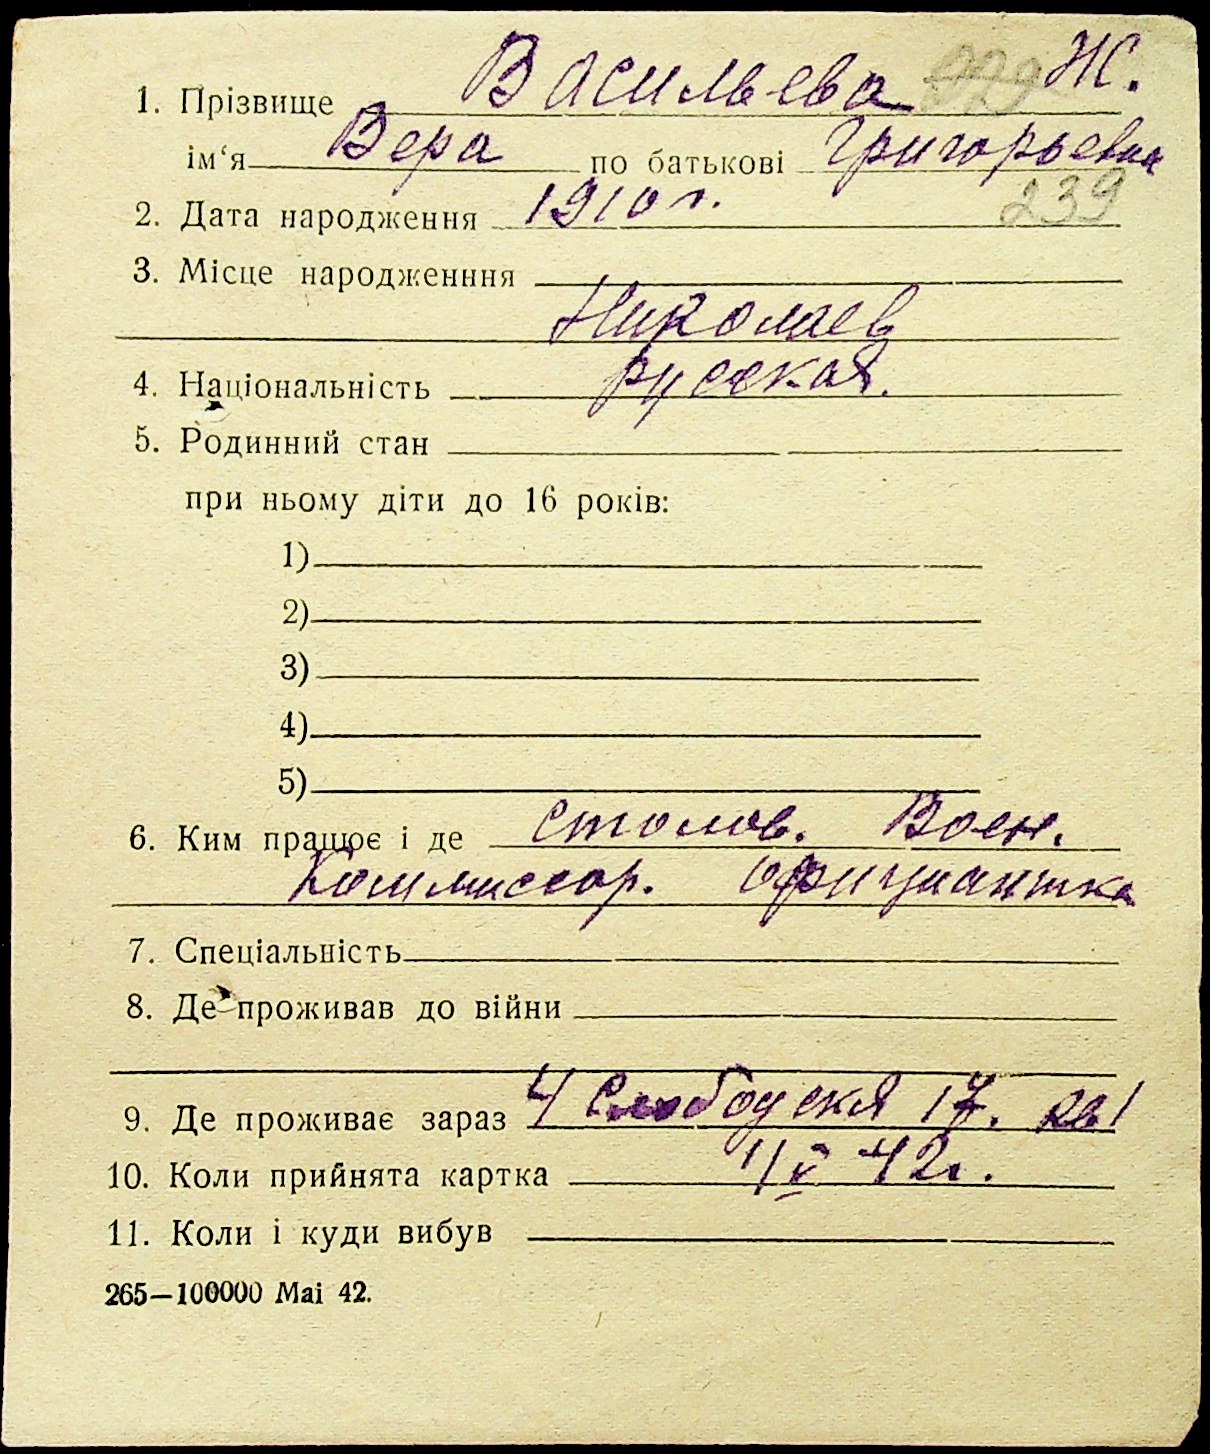 1. Прізвище Васильева Ж.
ім‘я Вера по батькові Григорьевна
2. Дата народження 1910 г. 239
3. Місце народженння
Николаев
4. Національність русская.
5. Родинний стан
при ньому діти до 16 років:
1)
2)
3)
4)
5)
6. Ким працює і де столов. Воен.
Коммиссар. официантка
7. Спеціальність
8. Де проживав до війни
9. Де проживає зараз 4 Слободская 17. кв 1
10. Коли прийнята картка 1/V 42г.
11. Коли і куди вибув
265—100000 Mai 42.